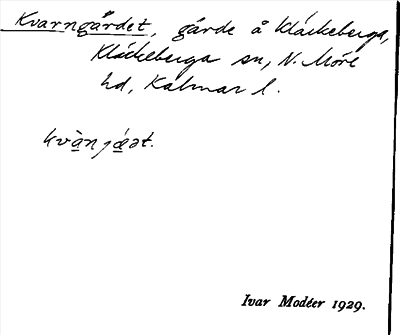 Kvarngärdet, gärde å Kläckeberga,
Kläckeberga sn, N. Möre
hd, Kalmar l.
kvàn jæ̀ət.
Ivar Modéer 1929.